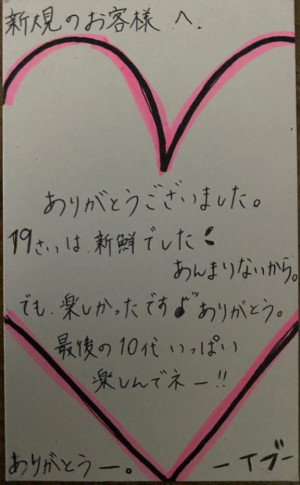 新規のお客様へ.
ありがとうございました。
19さいは新鮮でした!
あんまりないから。
でも、楽しかったです♪ありがとう。
最後の10代いっぱい
楽しんでネー!!
ありがとうー。
ーイブー